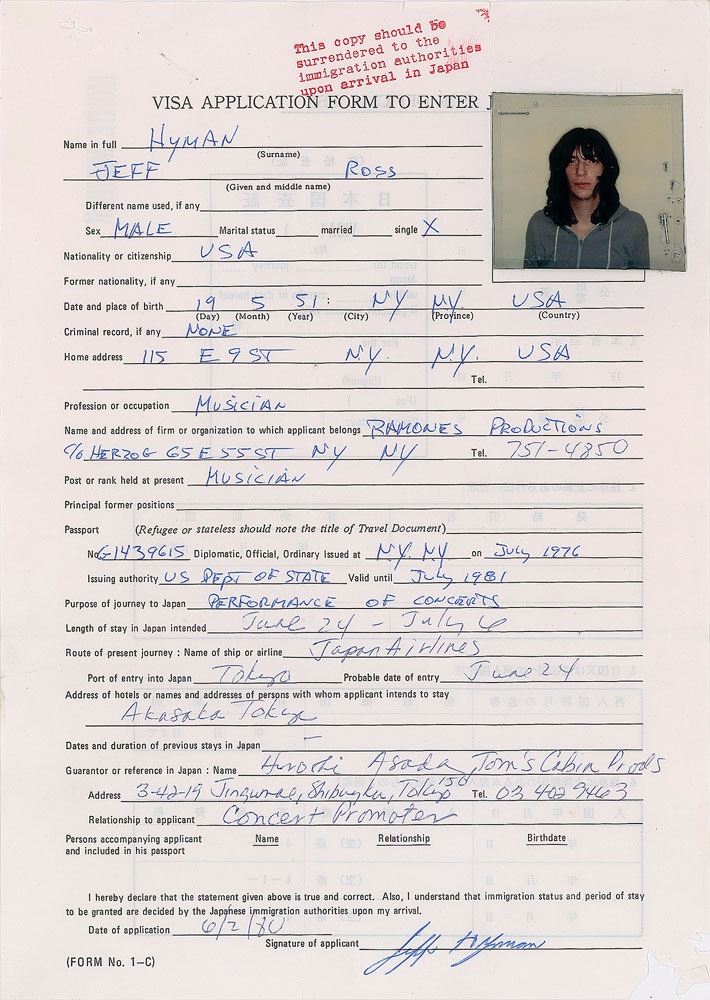 This copy should be
surrendered to the
immigration authorities
upon arrival in Japan
VISA APPLICATION FORM TO ENTER J
Name in full HYMAN
(Surname)
JEFF ROSS
(Given and middle name)
Different name used, if any
Sex MALE Marital status married single X
Nationality or citizenship USA
Former nationality, if any
Date and place of birth 19 5 51: NY NY USA
(Day) (Month) (Year) (City) (Province) (Country)
Criminal record, if any NONE
Home address 115 E 9 ST N.Y. N.Y. USA
Tel.
Profession or occupation MUSICIAN
Name and address of firm or organization to which applicant belongs RAMONES PRODUCTIONS
c/o HERZOG 65 E 55 ST NY NY Tel. 751-4850
Post or rank held at present MUSICIAN
Principal former positions
Passport (Refugee or stateless should note the title of Travel Document)
No. G1439615 Diplomatic, Official, Ordinary Issued at N.Y. NY on July 1976
Issuing authority US DEPT OF STATE Valid until July 1981
Purpose of journey to Japan PERFORMANCE OF CONCERTS
Length of stay in Japan intended June 24 - July 6
Route of present journey : Name of ship or airline Japan Airlines
Port of entry into Japan Tokyo Probable date of entry June 24
Address of hotels or names and addresses of persons with whom applicant intends to stay
Akasaka Tokyu
Dates and duration of previous stays in Japan —
Guarantor or reference in Japan : Name Hiroshi Asada, Tom's Cabin Prods
Address 3-42-19 Jingumae, Shibuyku, Tokyo 150 Tel. 03 402 9463
Relationship to applicant Concert Promoter
Persons accompanying applicant Name Relationship Birthdate
and included in his passport
I hereby declare that the statement given above is true and correct. Also, I understand that immigration status and period of stay
to be granted are decided by the Japanese immigration authorities upon my arrival.
Date of application 6/2/80
Signature of applicant Jeff Hyman
(FORM No. 1-C)